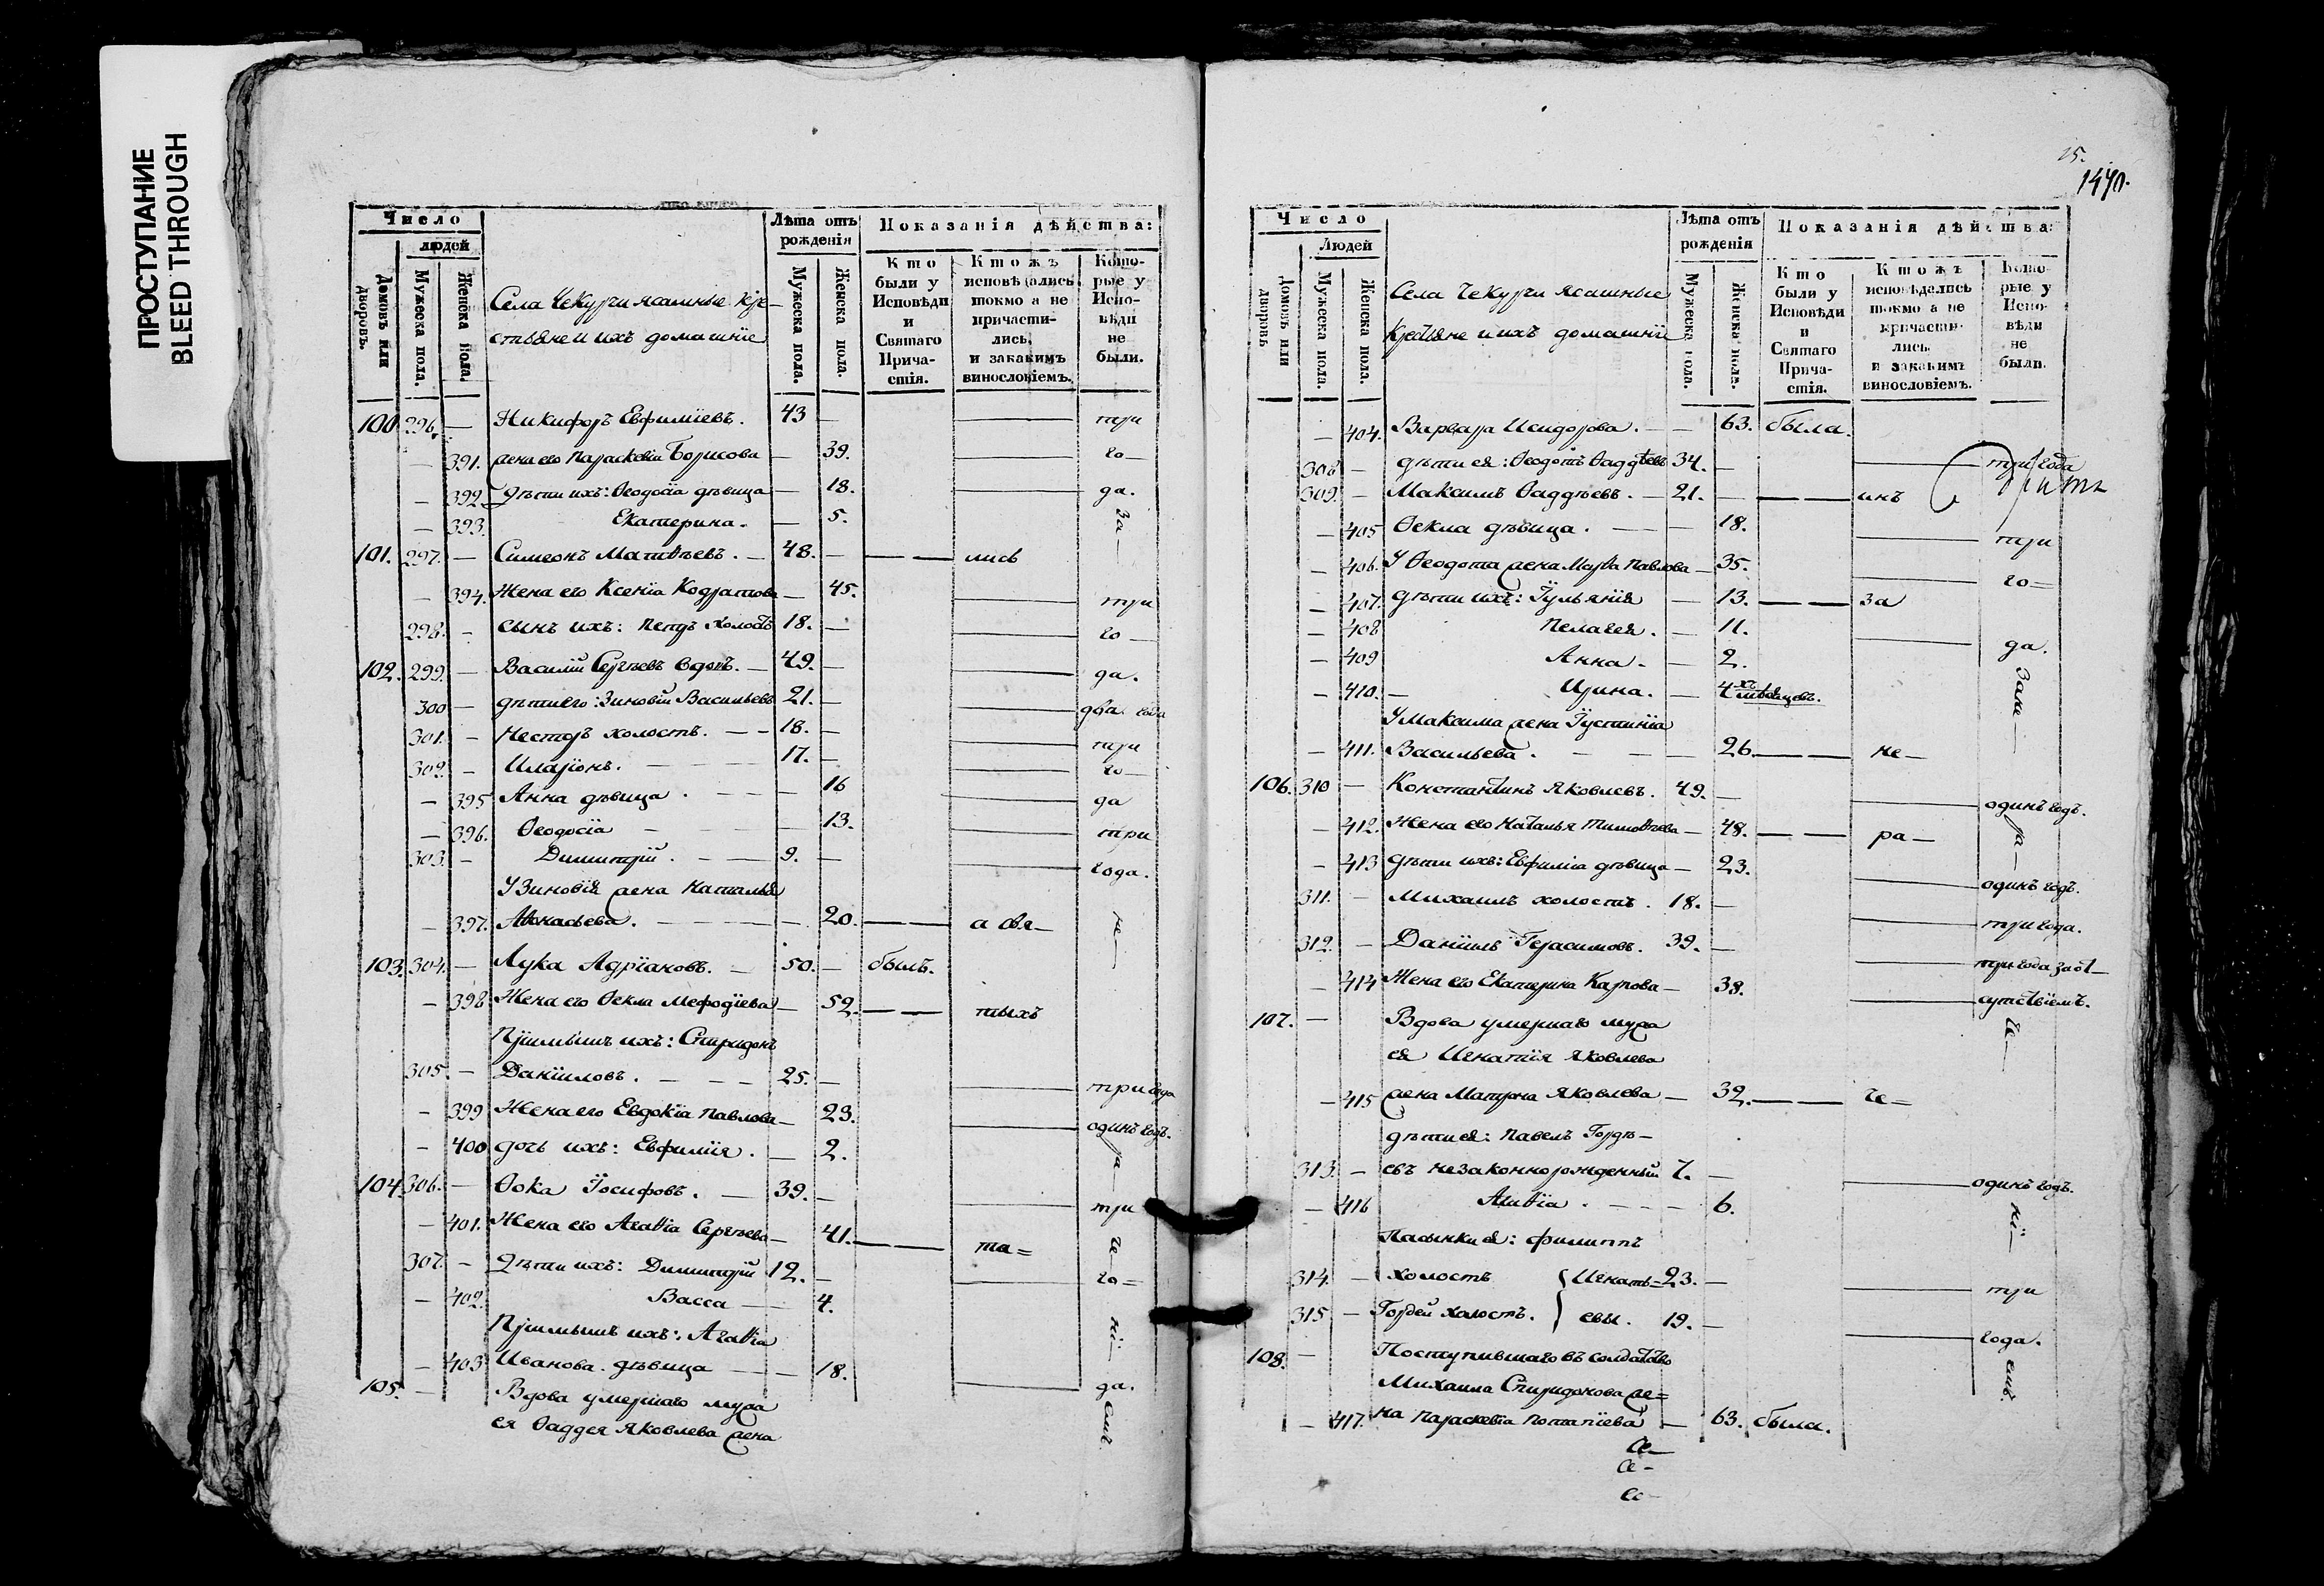 ПРОСТУПАНИЕ
BLEED THROUGH
Число
людей
Домовъ или дворовъ.
Мужеска пола.
Женска пола.
Села Чекурчи ясашные кре-
стьяне и ихъ домашніе
Лѣта отъ рожденія
Мужеска пола.
Женска пола.
Показанія дѣйства:
Кто были у Исповѣди и Святаго Прича-стія.
Ктожъ исповѣдались токмо а не причасти-лись, и закакимъ винословіемъ.
Кото-рые у Испо-вѣди не были.
100. 296. — Никифоръ Евфиміевъ. 43 — три
— 391. жена его Параскевіа Борисова — 39. го —
— 392 Дѣти ихъ: Ѳеодосіа дѣвица — 18. да.
— 393. Екатерина. — 5. За
101. 297. — Симеонъ Матѳѣевъ. — 48. — лись
— 394. Жена его Ксеніа Кодратова — 45. три
298. — сынъ ихъ: Петръ холостъ 18. — го —
102. 299. — Василій Сергѣевъ вдовъ. — 49. — да.
300 — дѣти его: Зиновій Васильевъ 21. — два года
301. — Несторъ холостъ. 18. — три
302. — Иларіонъ. 17. — го —
— 395 Анна дѣвица. — 16 да
— 396. Ѳеодосіа — 13. три
303. — Димитрій. 9. — года.
У Зиновія жена Наталья
— 397. Аѳанасьева. — 20. а свя — не —
103. 304. — Лука Адріановъ. — 50. — былъ.
— 398 Жена его Ѳекла Меѳодіева — 52. тыхъ
Пріимышъ ихъ: Спиридонъ
305. — Даніиловъ. 25. — три года
— 399 Жена его Евдокіа Павлова — 23. одинъ годъ.
— 400 дочь ихъ: Евфимія. — 2. ра —
104 306. — Ѳока Іосифовъ. — 39. — три
— 401. Жена его Агаѳіа Сергѣева — 41. та = че —
307. — Дѣти ихъ: Димитрій 12. — го =
— 402. Васса — 4.
Пріимышъ ихъ: Агаѳіа ні —
— 403 Иванова дѣвица — 18. да.
105. — Вдова умершаго мужа
ея Ѳаддея Яковлева жена емъ.
25.
1470.
Число
Людей
Домовъ или дворовъ
Мужеска пола.
Женска пола.
Села Чекурчи ясашные
крестьяне и ихъ домашніе
Лѣта отъ рожденія
Мужеска пола.
Женска пола.
Показанія дѣйства:
Кто были у Исповѣди и Святаго Прича-стія.
Ктожъ исповѣдались токмо а не причасти-лись и закакимъ винословіемъ.
Кото-рые у Испо-вѣди не были.
— 404. Варвара Исидорова. — 63. была.
308 — дѣти ея: Ѳеодотъ Ѳаддѣевъ 34. — три года
309. — Максимъ Ѳаддѣевъ. — 21. — инъ
— 405 Ѳекла дѣвица. — 18. три
— 406. У Ѳеодота жена Марѳа Павлова — 35. го =
— 407. дѣти ихъ: Іульянія — 13. за
— 408 Пелагея. — 11. да.
— 409 Анна — 2.
— 410. — Ирина. — 4хъ мѣсяцовъ. Зане —
У Максима жена Іустиніа
— 411. Васильева. — 26. не —
106. 310 — Константинъ Яковлевъ. 49. — одинъ годъ.
— 412. Жена его Наталья Тимоѳѣева — 48. ра — ра —
— 413 дѣти ихъ: Евфиміа дѣвица — 23. одинъ годъ.
311. — Михаилъ холостъ. 18. — три года.
312. — Даніилъ Герасимовъ. 39. — три года за от —
— 414 Жена его Екатерина Карпова — 38. сутствіемъ.
107. — Вдова умершаго мужа че —
ея Игнатія Яковлева
— 415 жена Матрона Яковлева — 32. че =
дѣти ея: Павелъ Гордѣ —
313. — евъ незаконнорожденный 7. — одинъ годъ.
— 416 Агаѳіа. 6. ні —
Пасынки ея: Филиппъ
314. — холостъ { Игнать = 23. — три
315 — Гордей холостъ. } евы. 19. — года.
108. — Поступившаго въ солдатство емъ.
Михаила Спиридонова же =
— 417. на Параскевіа Потапіева — 63. была.